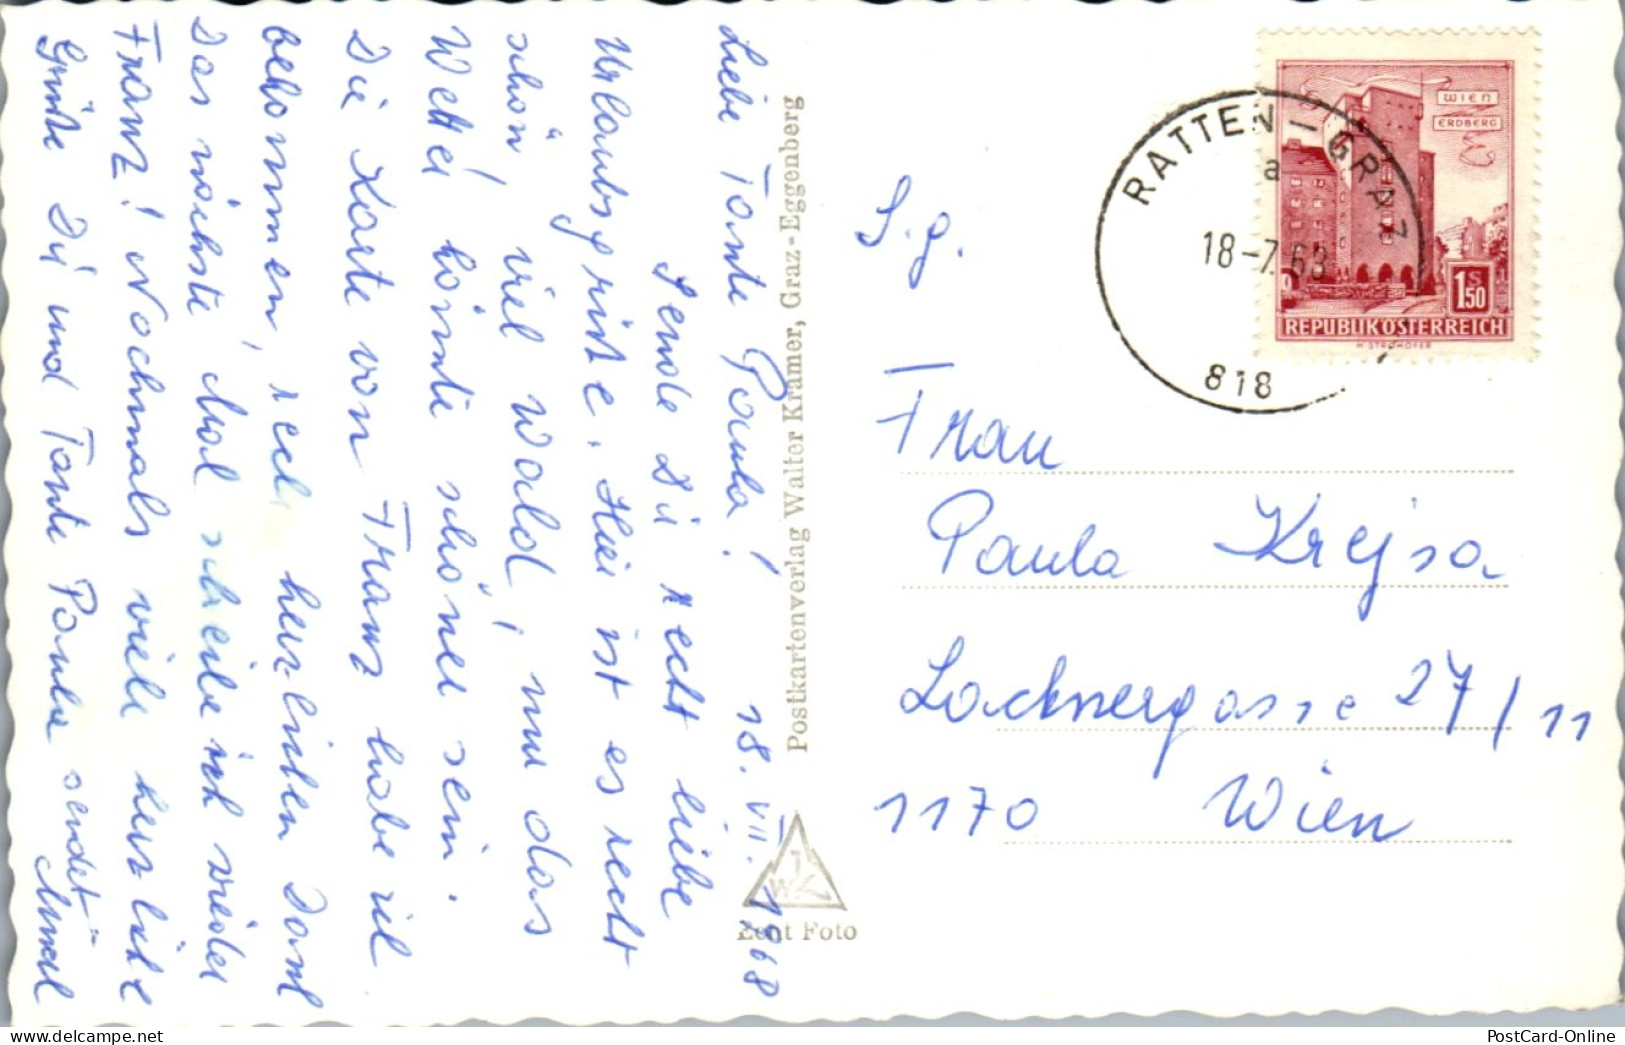 18. VII. 1968
Liebe Tante Paula!
Sende Dir recht liebe
Urlaubsgrüße. Hier ist es recht
schön, viel Wald, nur das
Wetter könnte schöner sein.
Die Karte von Franz habe ich
bekommen, recht herzlichen Dank
Das nächste Mal schreibe ich wieder
Franz! Nochmals viele herzliche
Grüße Dir und Tante Paula sendet
Postkartenverlag Walter Kramer, Graz-Eggenberg
JWK
Echt Foto
S.g.
Frau
Paula Krejsa
Lacknergasse 27/11
1170 Wien
RATTEN-GRAZ
a
18-7.68
818
WIEN
ERDBERG
1S50
REPUBLIK ÖSTERREICH
H. STROHOFER
PostCard-Online